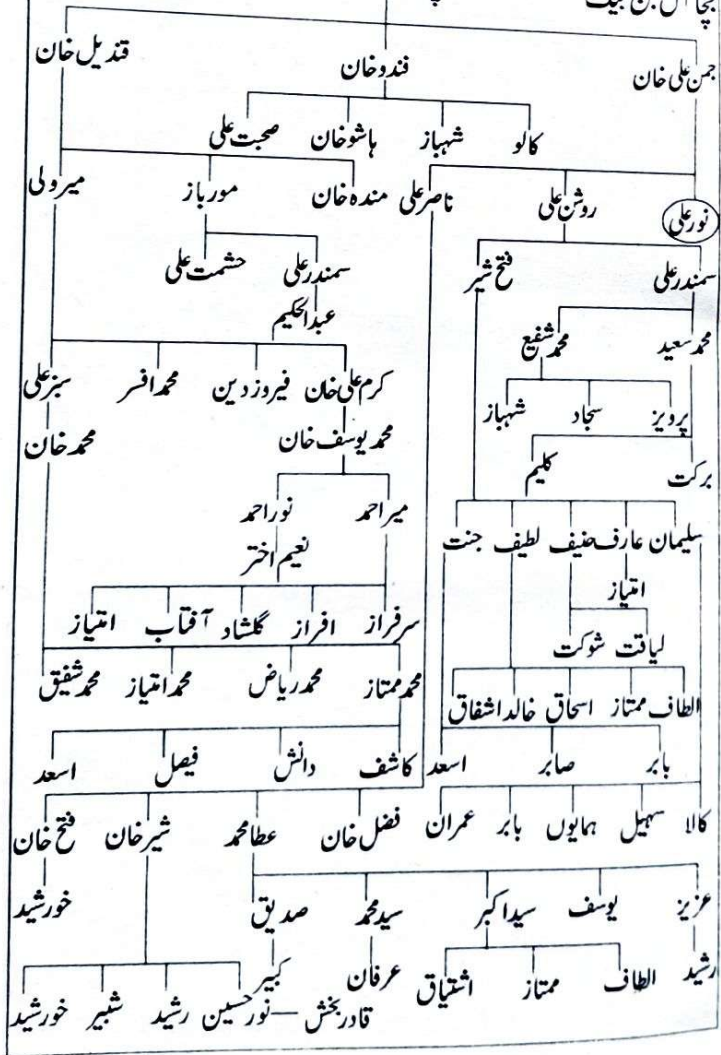 جمن علی خان فندوخان قندیل خان
کالو شہباز ہاشوخان صحبت علی
نورعلی روشن علی ناصرعلی مندہ خان مورباز میرولی
سمندرعلی فتح شیر سمندرعلی حشمت علی
عبدالحکیم
محمدسعید محمدشفیع کرم علی خان فیروزدین محمدافسر سبزعلی
پرویز سجاد شہباز محمدیوسف خان محمدخان
برکت کلیم میراحمد نوراحمد
سلیمان عارف حنیف لطیف جنت نعیم اختر
امتیاز
لیاقت شوکت سرفراز افراز گلشاد آفتاب امتیاز
الطاف ممتاز اسحاق خالد اشفاق محمدممتاز محمدریاض محمدامتیاز محمدشفیق
بابر صابر اسعد کاشف دانش فیصل اسعد
کالا سہیل ہمایوں بابر عمران فضل خان عطامحمد شیرخان فتح خان
عزیز یوسف سیداکبر سیدمحمد صدیق خورشید
رشید الطاف ممتاز اشتیاق عرفان کبیر
قادربخش — نورحسین رشید شبیر خورشید